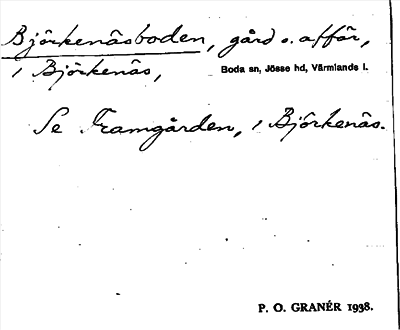 Björkenäsboden, gård o. affär,
i Björkenäs, Boda sn, Jösse hd, Värmlands l.
Se Framgården, i Björkenäs.
P. O. GRANÉR 1938.